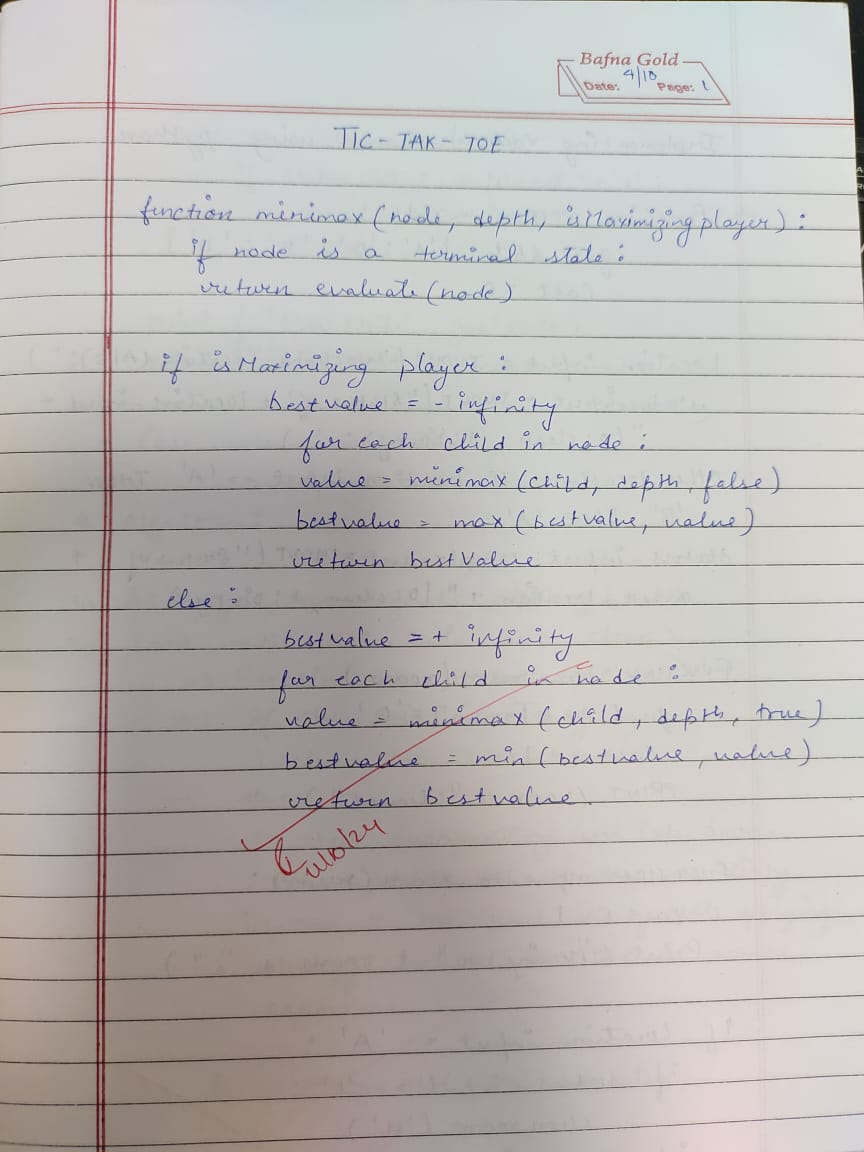 Bafna Gold
Date: 4/10 Page: 1
TIC - TAK - TOE
function minimax (node, depth, isMaximizing player) :
if node is a terminal state :
return evaluate (node)
if is Maximizing player :
bestvalue = - infinity
for each child in node :
value = minimax (child, depth, false)
bestvalue = max (bestvalue, value)
return bestValue
else :
bestvalue = + infinity
for each child in node :
value = minimax (child, depth, true)
bestvalue = min (bestvalue, value)
return bestvalue.